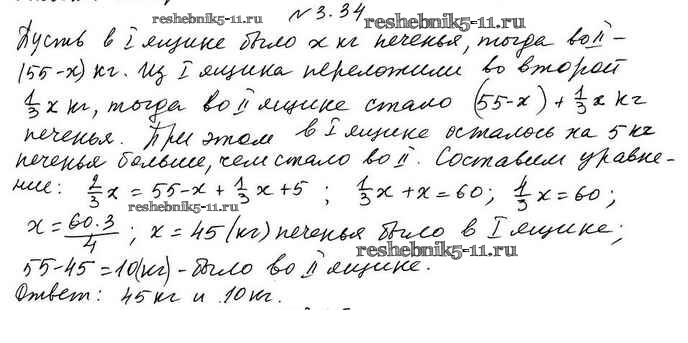 №3.34
reshebnik5-11.ru
Пусть в I ящике было x кг печенья, тогда во II –
(55-x) кг. Из I ящика переложили во второй
1/3 x кг, тогда во II ящике стало (55-x) + 1/3 x кг
печенья. При этом в I ящике осталось на 5 кг
печенья больше, чем стало во II. Составим уравне-
ние: 2/3 x = 55-x + 1/3 x + 5 ; 1/3 x + x = 60; 4/3 x = 60 ;
reshebnik5-11.ru
x = 60·3/4 ; x = 45 (кг) печенья было в I ящике;
reshebnik5-11.ru
55-45 = 10(кг) - было во II ящике.
Ответ: 45 кг и 10 кг.